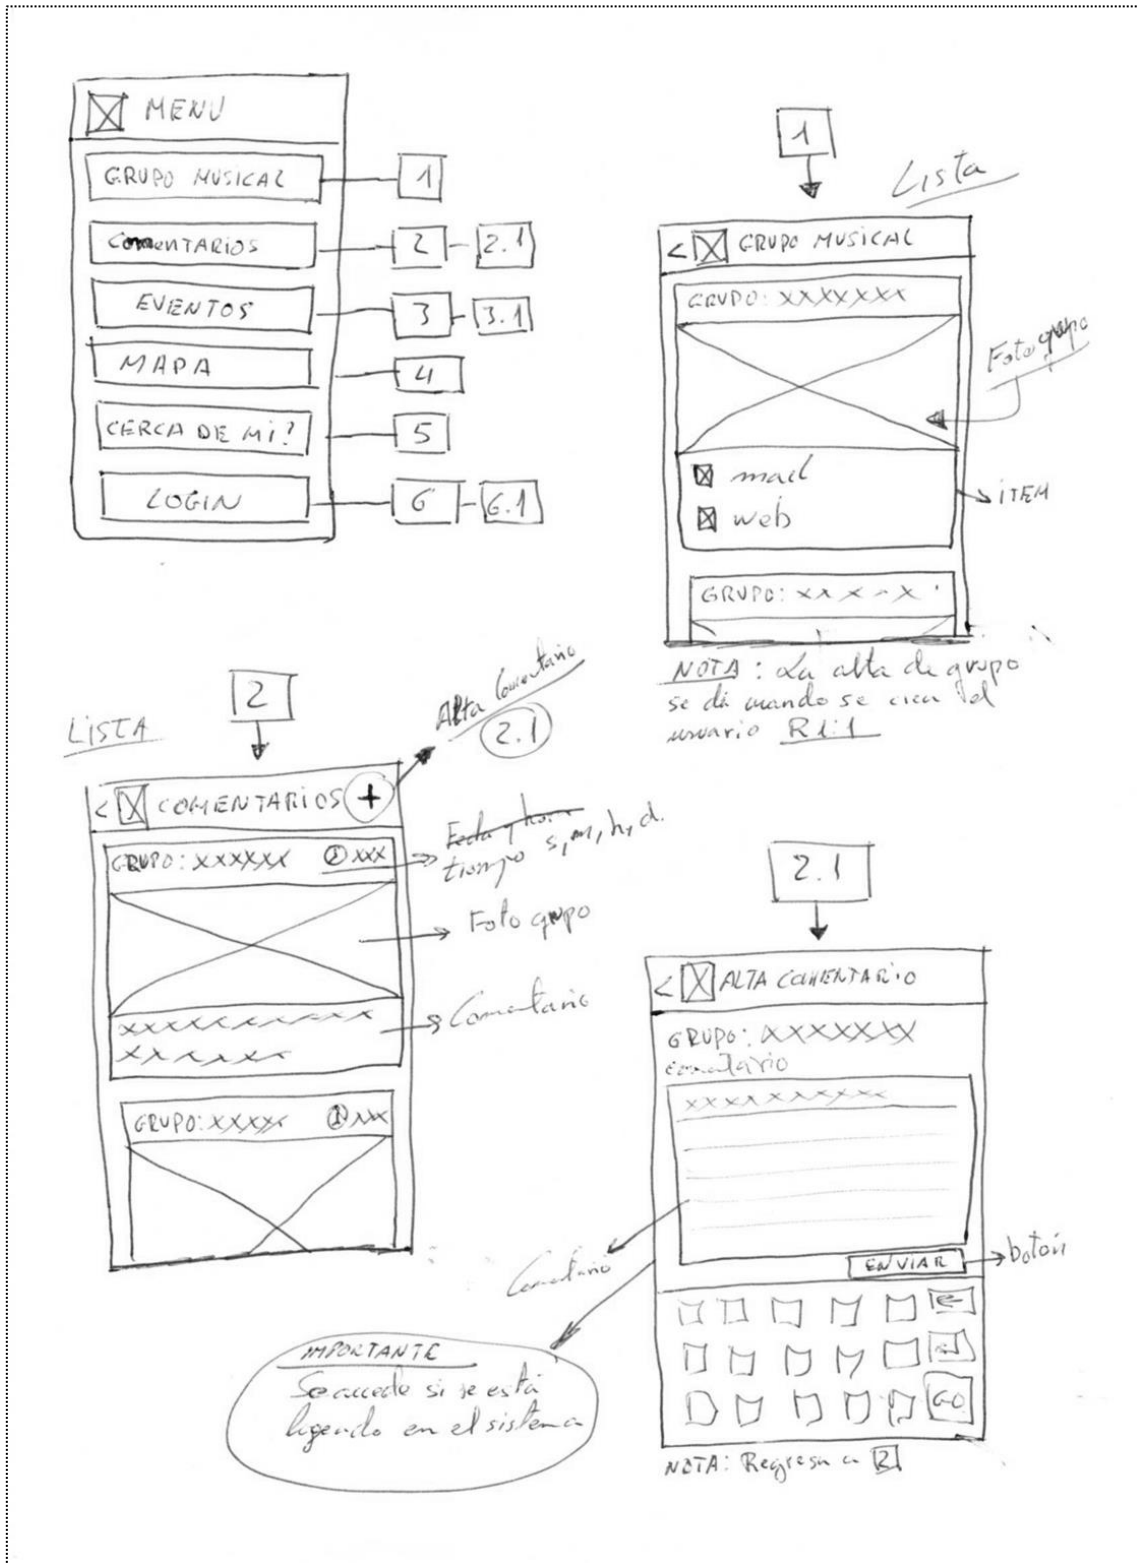 MENU
GRUPO MUSICAL
1
COMENTARIOS
2
2.1
EVENTOS
3
3.1
MAPA
4
CERCA DE MI?
5
LOGIN
6
6.1
1
Lista
< GRUPO MUSICAL
GRUPO: XXXXXXX
Foto grupo
mail
web
ITEM
GRUPO: XXXXX
NOTA: La alta de grupo
se dá cuando se crea el
usuario R1:1
2
LISTA
Alta Comentario
2.1
< COMENTARIOS +
GRUPO: XXXXXX XXX
Fecha y hora
tiempo s, m, h, d.
Foto grupo
XXXXXXXXXX
XXXXXXX
Comentario
GRUPO: XXXXX XXX
2.1
< ALTA COMENTARIO
GRUPO: XXXXXXX
comentario
XXXXXXXXXX
Comentario
ENVIAR
botón
GO
IMPORTANTE
Se accede si se está
logeado en el sistema
NOTA: Regresa a 2